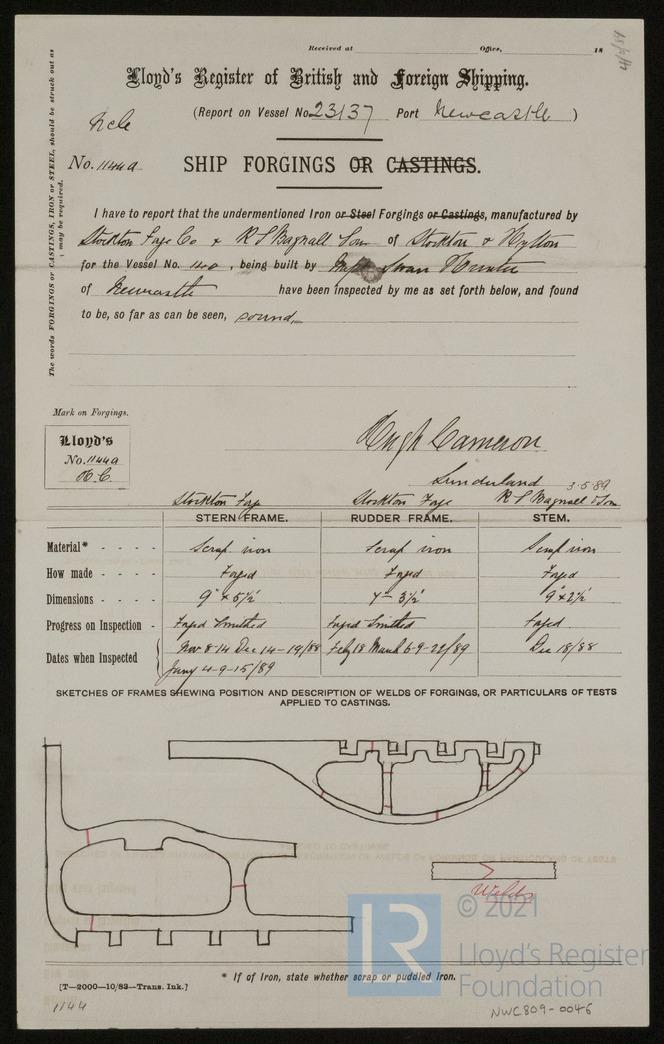 Received at Office, 18
4/5/89
Lloyd's Register of British and Foreign Shipping.
(Report on Vessel No. 23137 Port Newcastle )
Ncle
No. 1144a SHIP FORGINGS OR CASTINGS.
The words FORGINGS or CASTINGS, IRON or STEEL, should be struck out as
may be required.
I have to report that the undermentioned Iron or Steel Forgings or Castings, manufactured by
Stockton Forge Co & R S Bagnall & Son of Stockton & Hylton
for the Vessel No. 140, being built by Messrs Swan Hunter
of Newcastle have been inspected by me as set forth below, and found
to be, so far as can be seen, sound.
Mark on Forgings.
Lloyd's
No. 1144a
H.C.
Hugh Cameron
Sunderland 3.5.89
Stockton Forge Stockton Forge R S Bagnall & Son
STERN FRAME. RUDDER FRAME. STEM.
Material* - - - - Scrap iron Scrap iron Scrap iron
How made - - - - Forged Forged Forged
Dimensions - - - - 9" x 5½" 7" - 3½" 9" x 2½"
Progress on Inspection - Forged & smithed Forged & smithed Forged
Dates when Inspected Nov 8-14 Dec 14-19/88 Feby 18 March 6-9-22/89 Dec 18/88
Jany 4-9-15/89
SKETCHES OF FRAMES SHEWING POSITION AND DESCRIPTION OF WELDS OF FORGINGS, OR PARTICULARS OF TESTS
APPLIED TO CASTINGS.
Welds
© 2021
LR
Lloyd's Register
Foundation
* If of Iron, state whether scrap or puddled iron.
[T—2000—10/83—Trans. Ink.]
1144
NWC809-0046